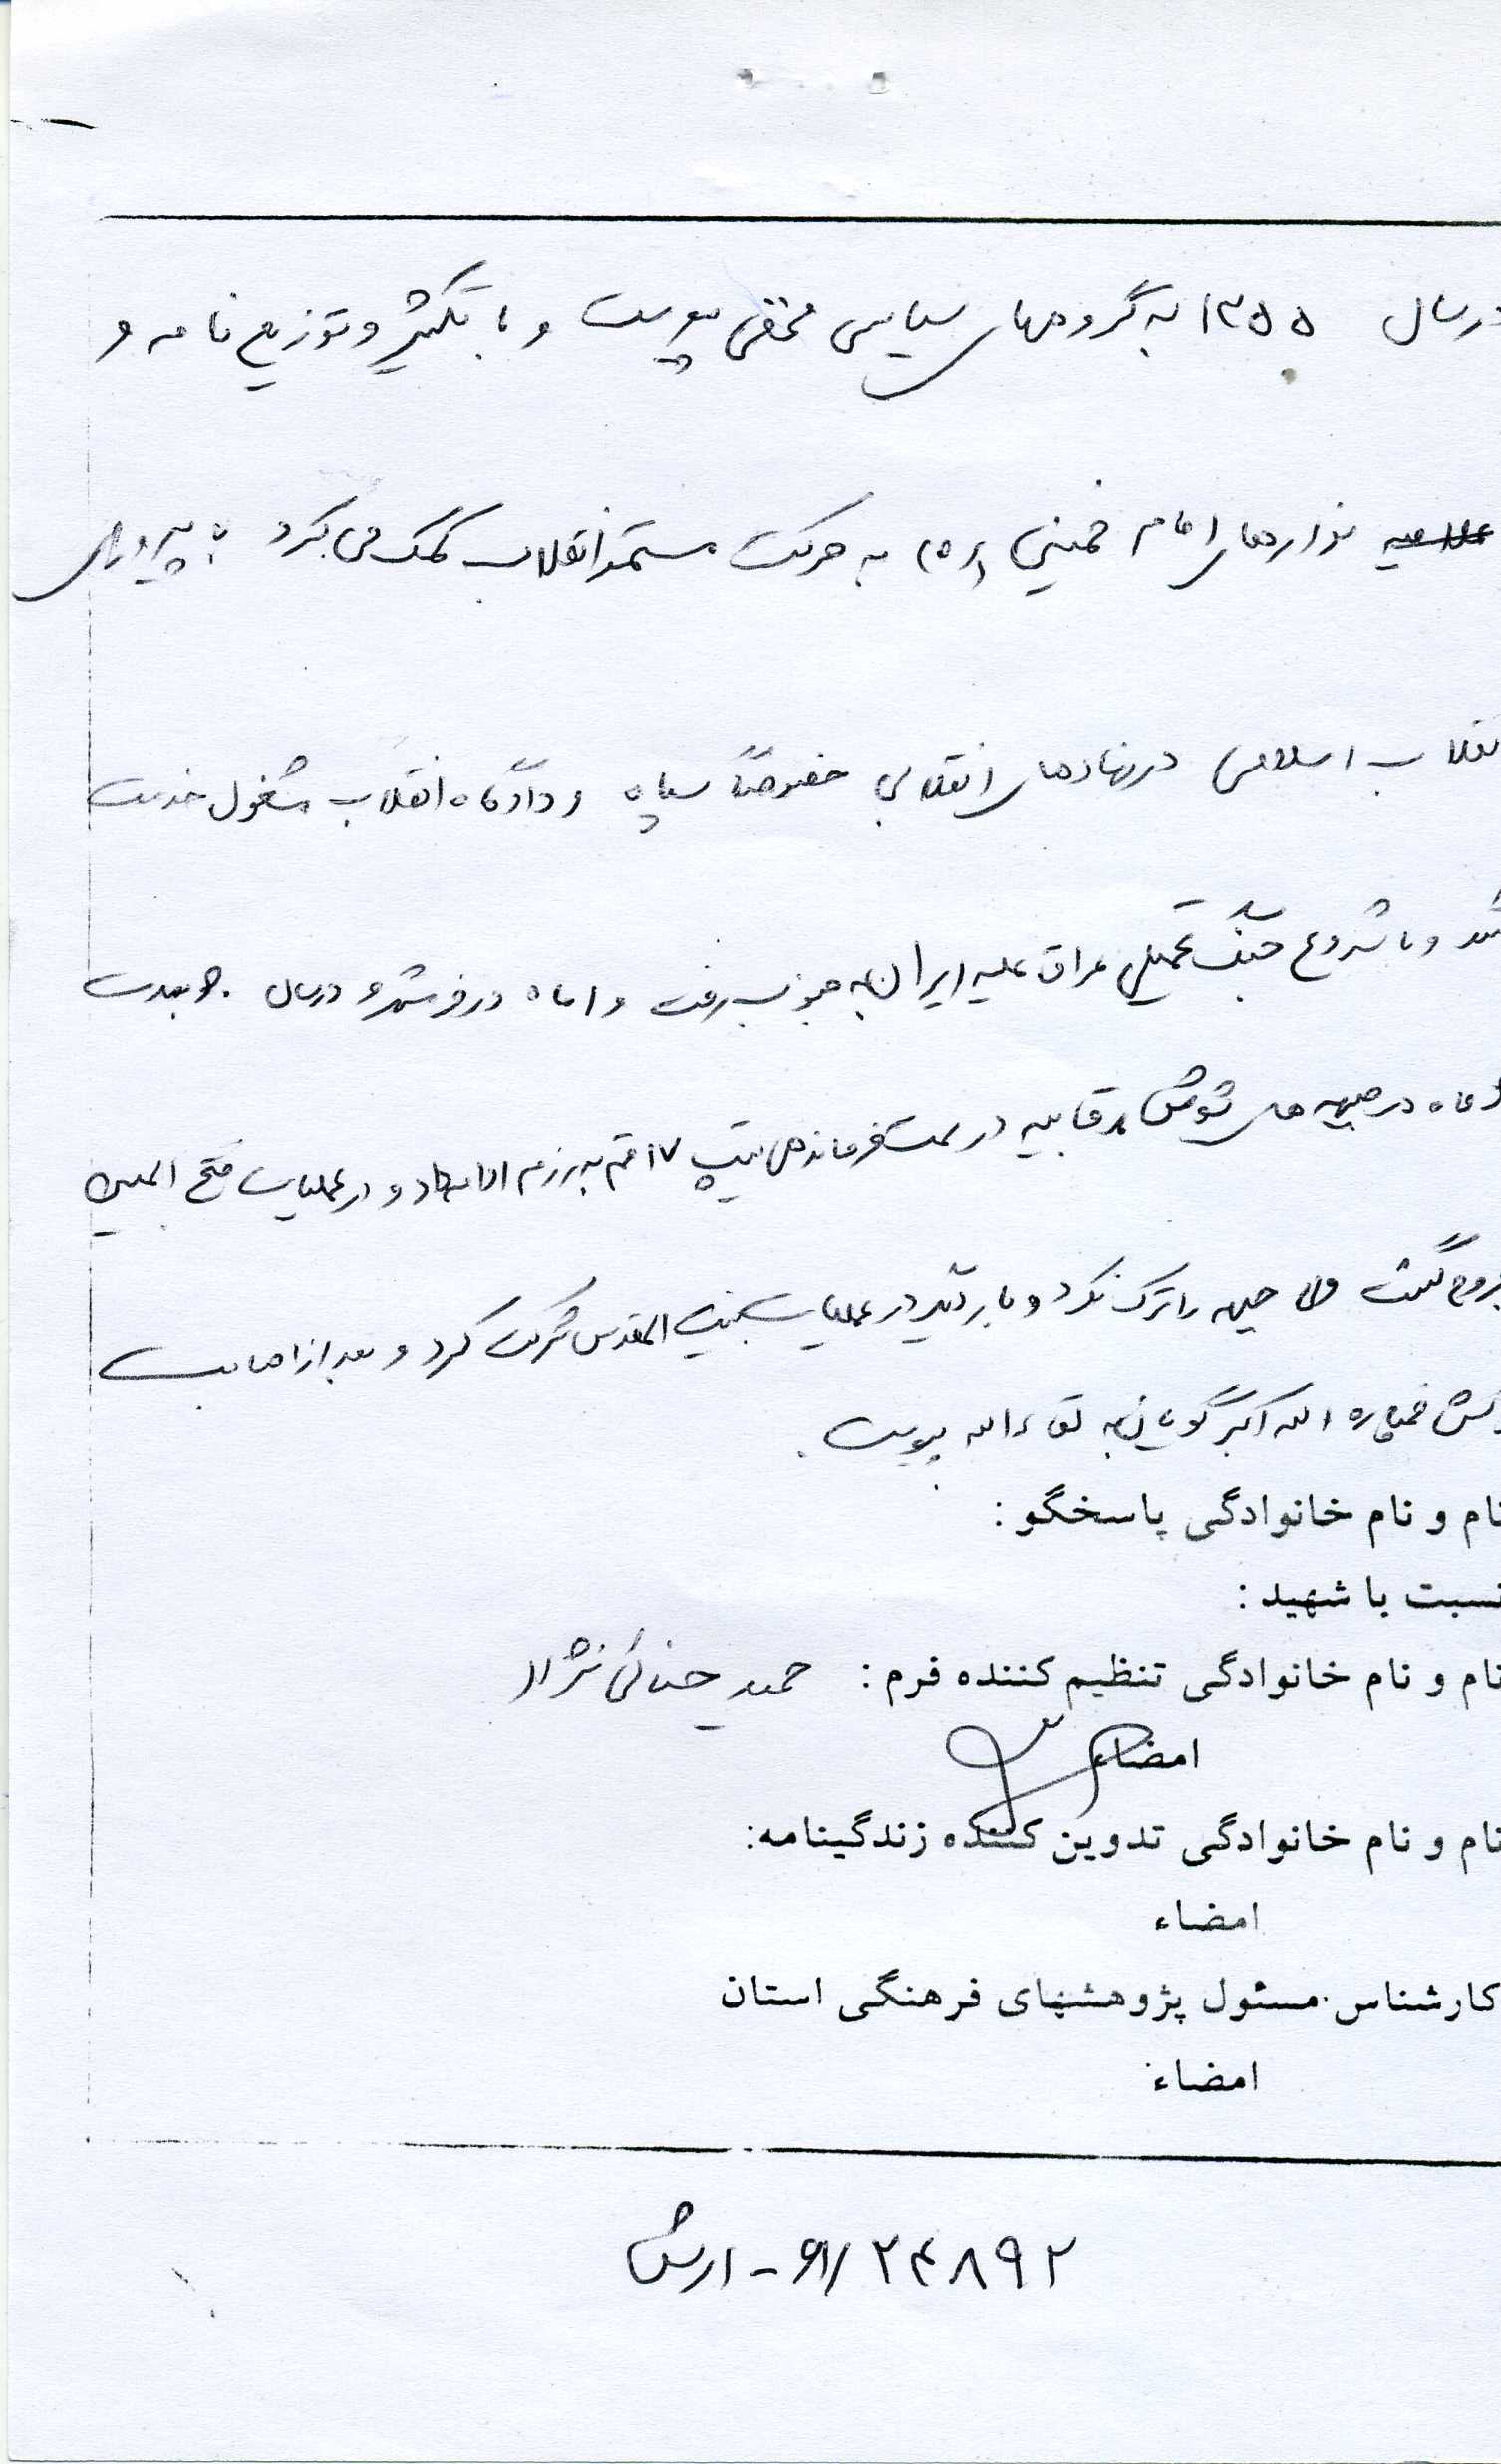 در سال ۱۳۵۵ به گروههای سیاسی مخفی پیوست و با تکثیر و توزیع نامه و
نوارهای امام خمینی (ره) به حرکت مستمر انقلاب کمک می کرد با پیروزی
انقلاب اسلامی در نهادهای انقلابی خصوصاً سپاه و دادگاه انقلاب مشغول خدمت
شد و با شروع جنگ تحمیلی عراق علیه ایران به جنوب رفت و ۱ ماه در خرمشهر و در سال ۶۰ بمدت
ماه در جبهه های شوش و رقابیه در سمت فرماندهی تیپ ۱۷ قم به رزم ادامه داد و در عملیات فتح المبین
مجروح گشت ولی جبهه را ترک نکرد و بار دیگر در عملیات بیت المقدس شرکت کرد و بعد از اصابت
ترکش خمپاره الله اکبر گویان به لقاء الله پیوست.
نام و نام خانوادگی پاسخگو :
نسبت با شهید :
نام و نام خانوادگی تنظیم کننده فرم : حمید حنائی نژاد
امضاء
نام و نام خانوادگی تدوین کننده زندگینامه:
امضاء
کارشناس مسئول پژوهشهای فرهنگی استان
امضاء
۶۱/۲۴۸۹۲ - ارتش